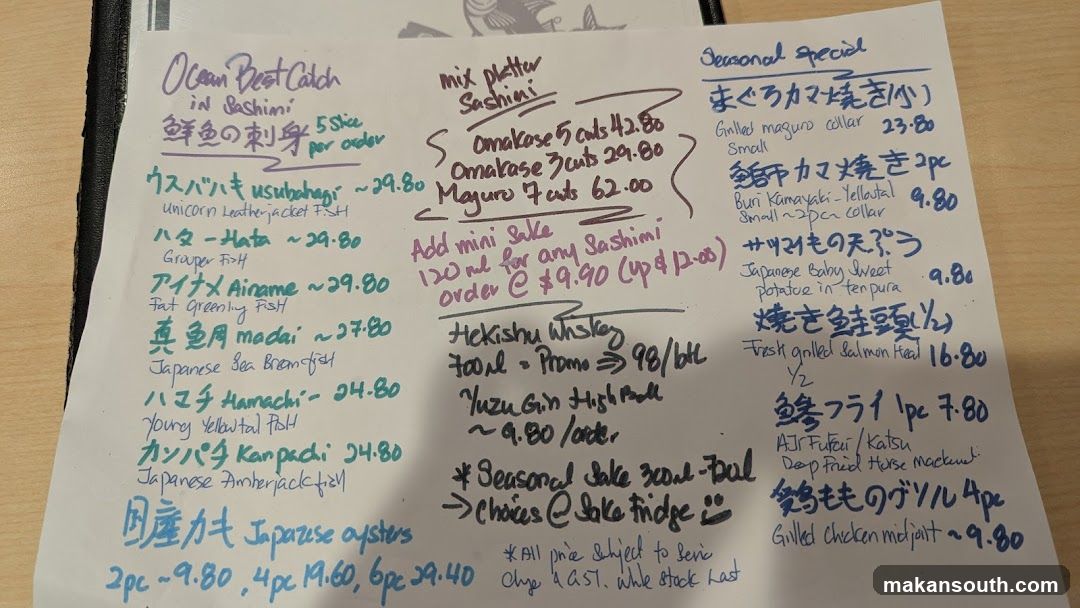 Ocean Best Catch
in Sashimi
鮮魚の刺身
5 Slice
per order
ウスバハキ usubahagi ~ 29.80
Unicorn Leatherjacket Fish
ハター Hata ~ 29.80
Grouper Fish
アイナメ Ainame ~ 29.80
Fat Greenling Fish
真鯛 madai ~ 27.80
Japanese Sea Breamfish
ハマチ Hamachi - 24.80
Young Yellowtail Fish
カンパチ Kanpachi 24.80
Japanese Amberjackfish
国産カキ Japanese oysters
2pc ~ 9.80, 4pc 19.60, 6pc 29.40
mix platter
Sashimi
Omakase 5 cuts 42.80
Omakase 3 cuts 29.80
Maguro 7 cuts 62.00
Add mini Sake
120ml for any Sashimi
order @ $9.90 (up $12.00)
Hekishu Whiskey
700ml = Promo ⇒ 98/btl
Yuzu Gin High Ball
~ 9.80 /order
* Seasonal Sake 300ml - 720ml
→ Choices @ Sake Fridge
* All price Subject to Servic
Chge & GST. While Stock Last
Seasonal Special
まぐろカマ焼き(小)
Grilled maguro collar 23.80
Small
カマ焼き 2pc
Buri Kamayaki - Yellowtail 9.80
Small ~ 2pc ~ collar
サツマイもの天ぷら
Japanese Baby Sweet
potatoe in tempura 9.80
焼き鮭頭(1/2)
Fresh grilled Salmon Head 16.80
1/2
鯵フライ 1pc 7.80
AJI Furai / Katsu
Deep Fried Horse Mackerel
鶏もものグリル 4pc
Grilled Chicken midjoint ~ 9.80
makansouth.com